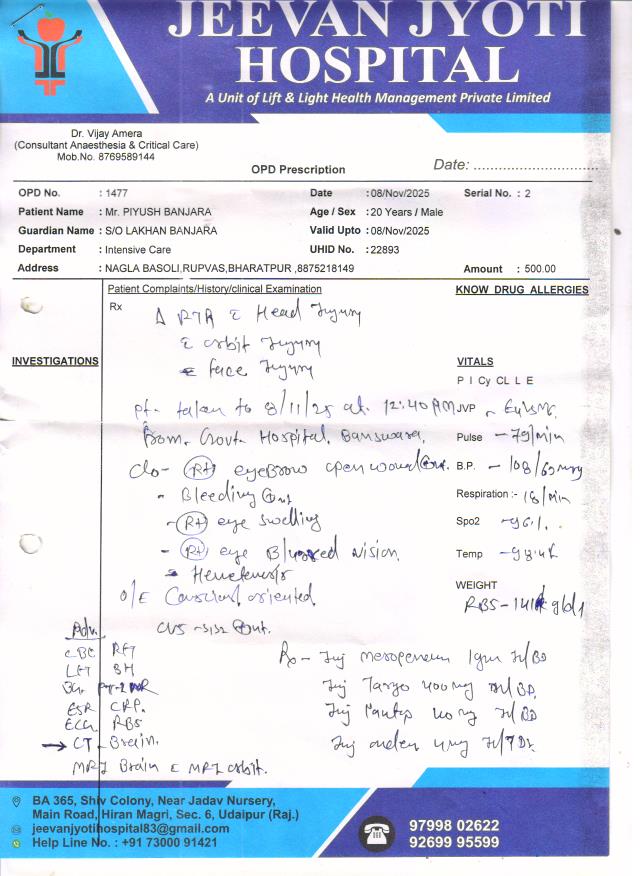 JEEVAN JYOTI
HOSPITAL
A Unit of Lift & Light Health Management Private Limited
Dr. Vijay Amera
(Consultant Anaesthesia & Critical Care)
Mob.No. 8769589144
OPD Prescription
Date: ..............................
OPD No. : 1477 Date : 08/Nov/2025 Serial No. : 2
Patient Name : Mr. PIYUSH BANJARA Age / Sex : 20 Years / Male
Guardian Name : S/O LAKHAN BANJARA Valid Upto : 08/Nov/2025
Department : Intensive Care UHID No. : 22893
Address : NAGLA BASOLI,RUPVAS,BHARATPUR ,8875218149 Amount : 500.00
Patient Complaints/History/clinical Examination
KNOW DRUG ALLERGIES
Rx
Δ RTA c̄ Head Injury
c̄ orbit Injury
c̄ face Injury
INVESTIGATIONS
VITALS
P I Cy CL L E
pt. taken to 8/11/25 at. 12:40 AM
JVP
from. Govt. Hospital, Banswara.
Pulse - 79/min
C/o- (Rt) eyeBrow open wound
B.P. - 108/60
- Bleeding
Respiration :- 18/min
- (Rt) eye swelling
Spo2 -96%.
- (Rt) eye Blurred vision.
Temp
- Hemetemesis
WEIGHT
O/E Conscious oriented
RBS-
Adv.
CVS - S1S2
CBC RFT
LFT
ESR CRP.
ECG RBS
→ CT - Brain.
MRI Brain c̄ MRI orbit.
Rx - Inj meropenem 1gm IV/BD
Inj Targo 400mg IV/BD.
Inj Pantop 40 mg IV/BD
Inj
BA 365, Shiv Colony, Near Jadav Nursery,
Main Road, Hiran Magri, Sec. 6, Udaipur (Raj.)
jeevanjyotihospital83@gmail.com
Help Line No. : +91 73000 91421
97998 02622
92699 95599